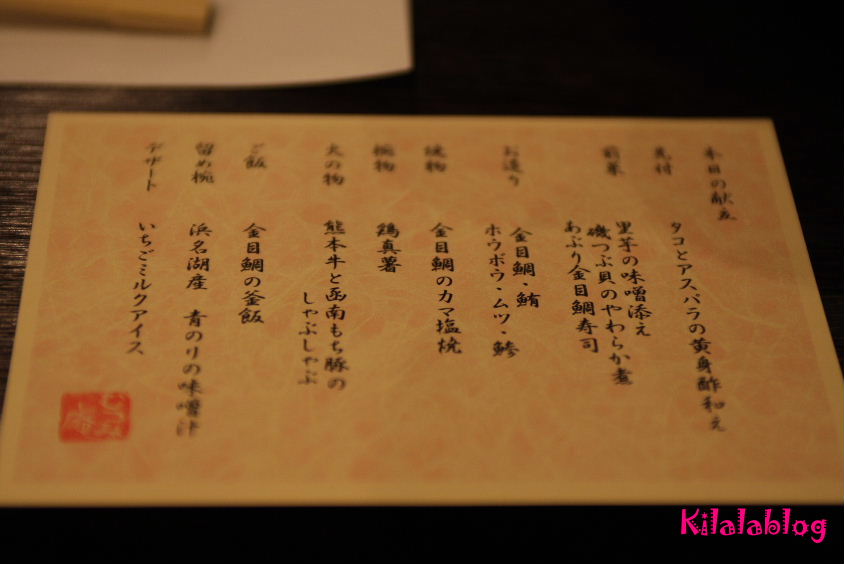 本日の献立
先付
タコとアスパラの黄身酢和え
前菜
里芋の味噌添え
磯つぶ貝のやわらか煮
あぶり金目鯛寿司
お造り
金目鯛・鮪
ホウボウ・ムツ・鯵
焼物
金目鯛のカマ塩焼
椀物
鶏真薯
火の物
熊本牛と函南もち豚の
しゃぶしゃぶ
ご飯
金目鯛の釜飯
留め椀
浜名湖産 青のりの味噌汁
デザート
いちごミルクアイス
Kilalablog